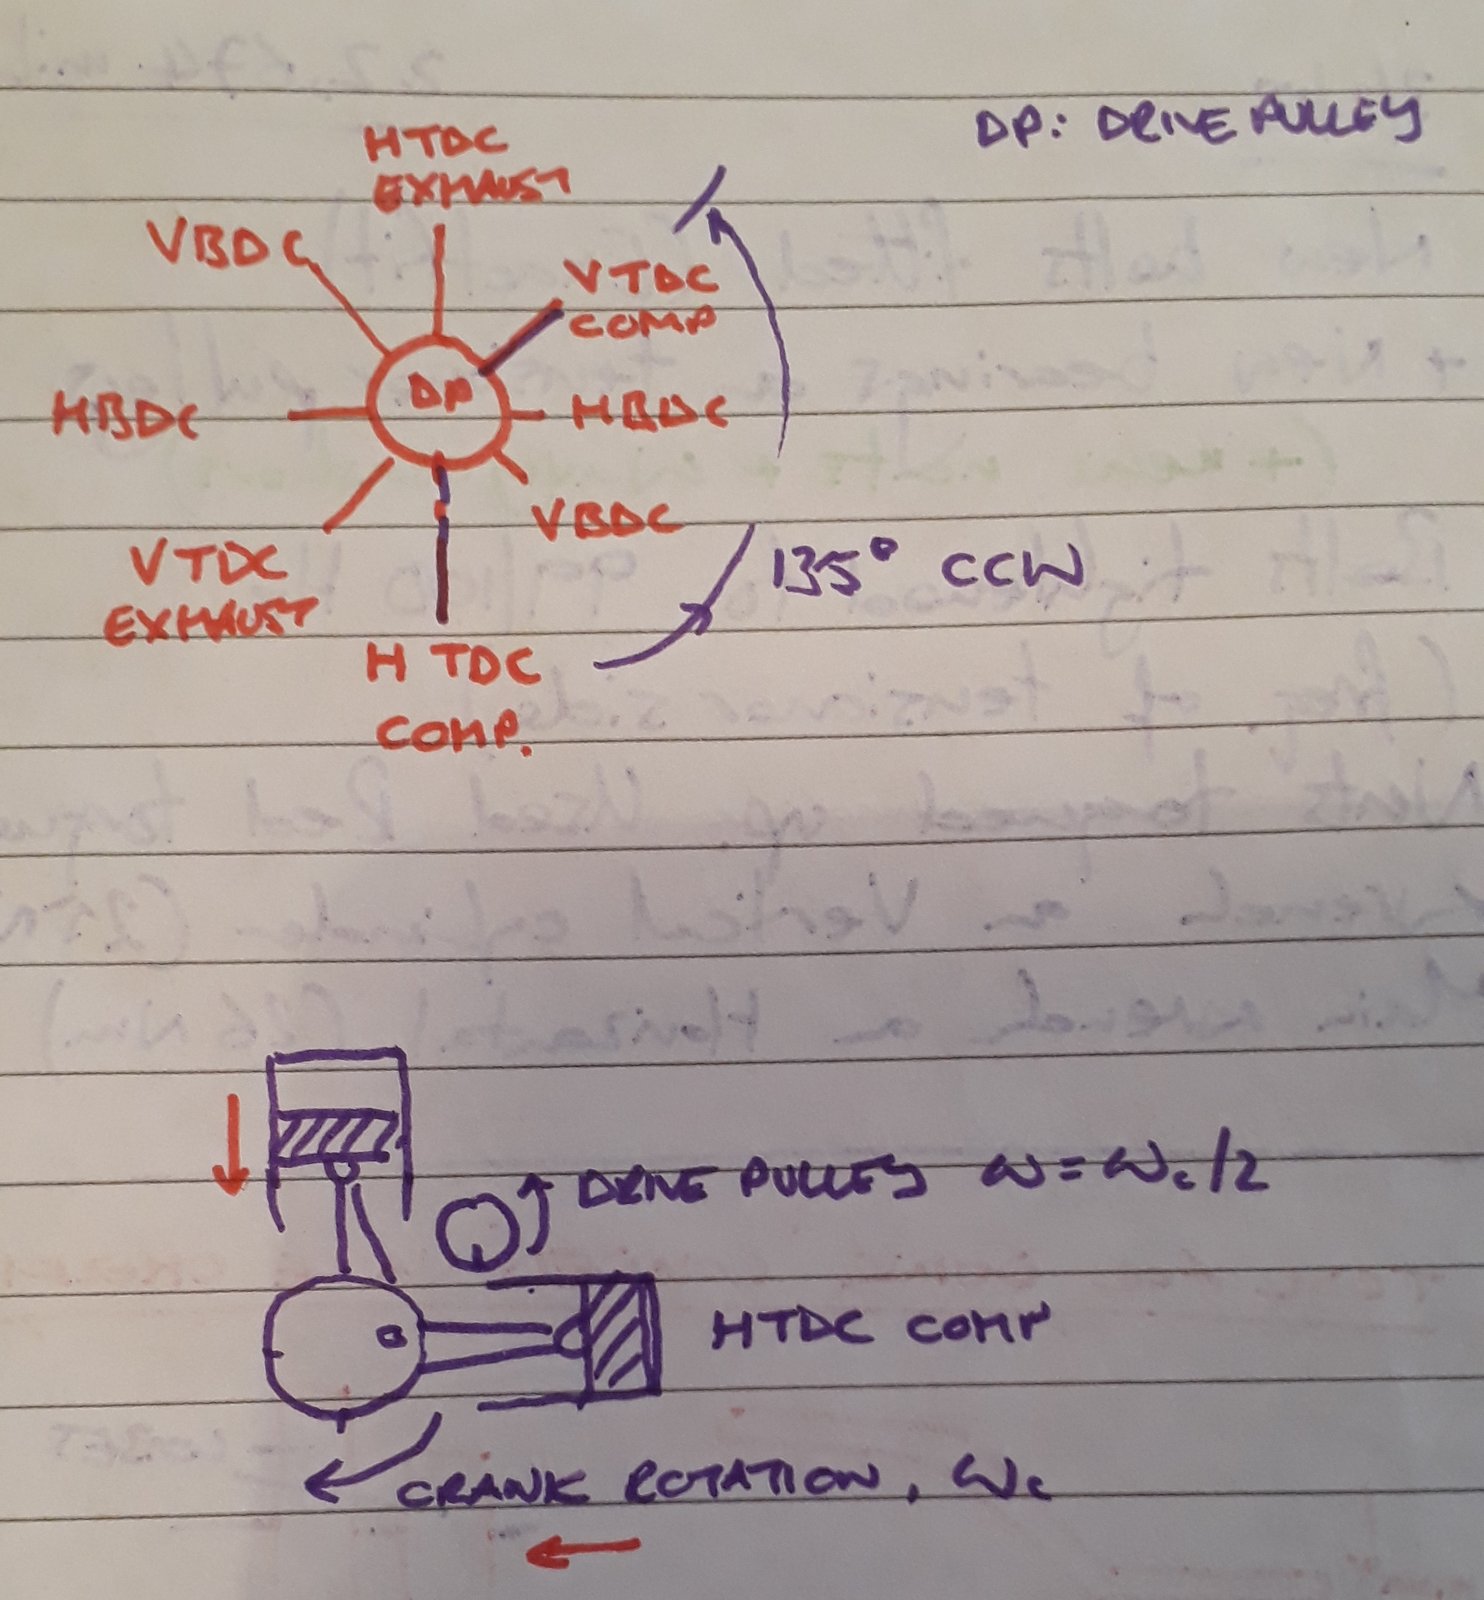 DP: DRIVE PULLEY
HTDC
EXHAUST
VBDC
VTDC
COMP
DP
HBDC
HBDC
VBDC
VTDC
EXHAUST
135° CCW
H TDC
COMP.
DRIVE PULLEY ω = ωc/2
HTDC COMP
CRANK ROTATION, ωc